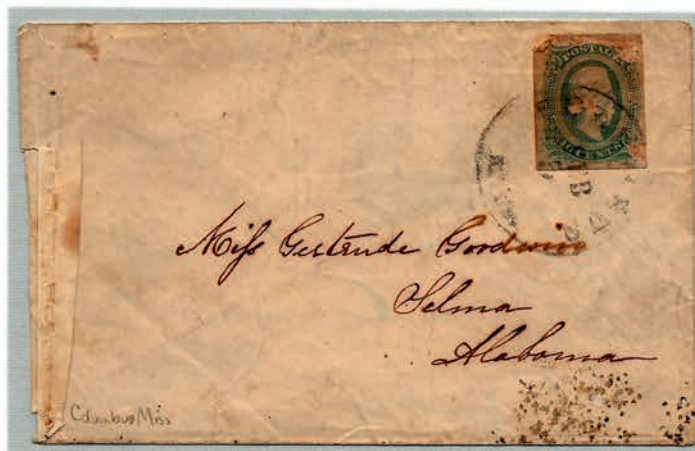 POSTAGE
10 CENTS
Miſs Gertrude Goodwin
Selma
Alabama
Columbus Miss